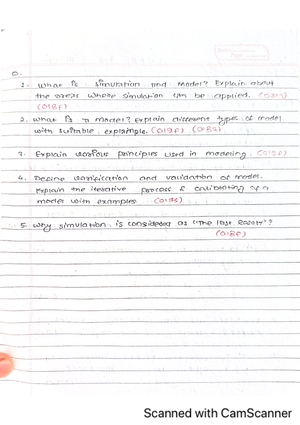 1. What is simulation and model? Explain about
the areas where simulation can be applied.
(018F)
2. What is a model? Explain different types of model
with suitable example. (019F) (018S)
3. Explain various principles used in modeling. (019F)
4. Define verification and validation of model.
Explain the iterative process of calibrating of a
model with examples (018S)
5. Why simulation is considered as "The last Resort"?
(018F)
Scanned with CamScanner